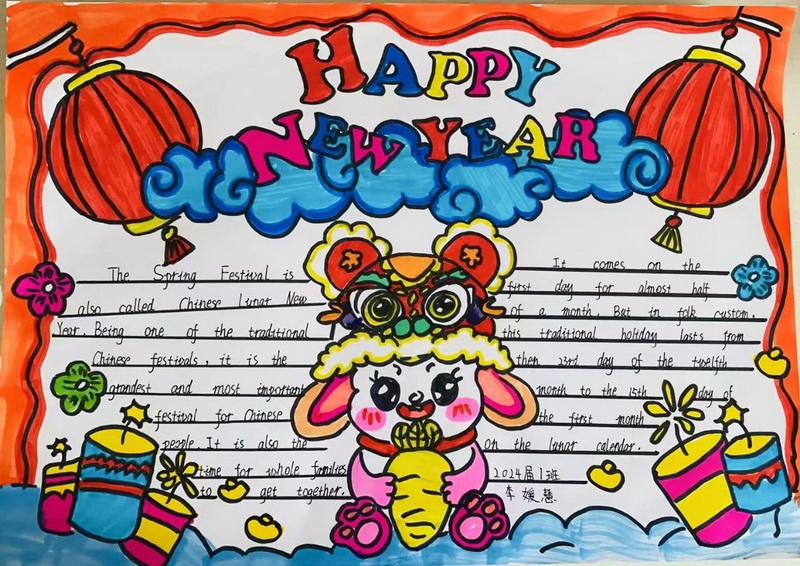 HAPPY
NEW YEAR
The Spring Festival is
also called Chinese Lunar New
Year. Being one of the traditional
Chinese festivals, it is the
grandest and most important
festival for Chinese
people. It is also the
time for whole families
to get together.
It comes on the
first day for almost half
of a month. But in folk custom,
this traditional holiday lasts from
then 23rd day of the twelfth
month to the 15th day of
the first month
on the lunar calendar.
2024届1班
李媛慧